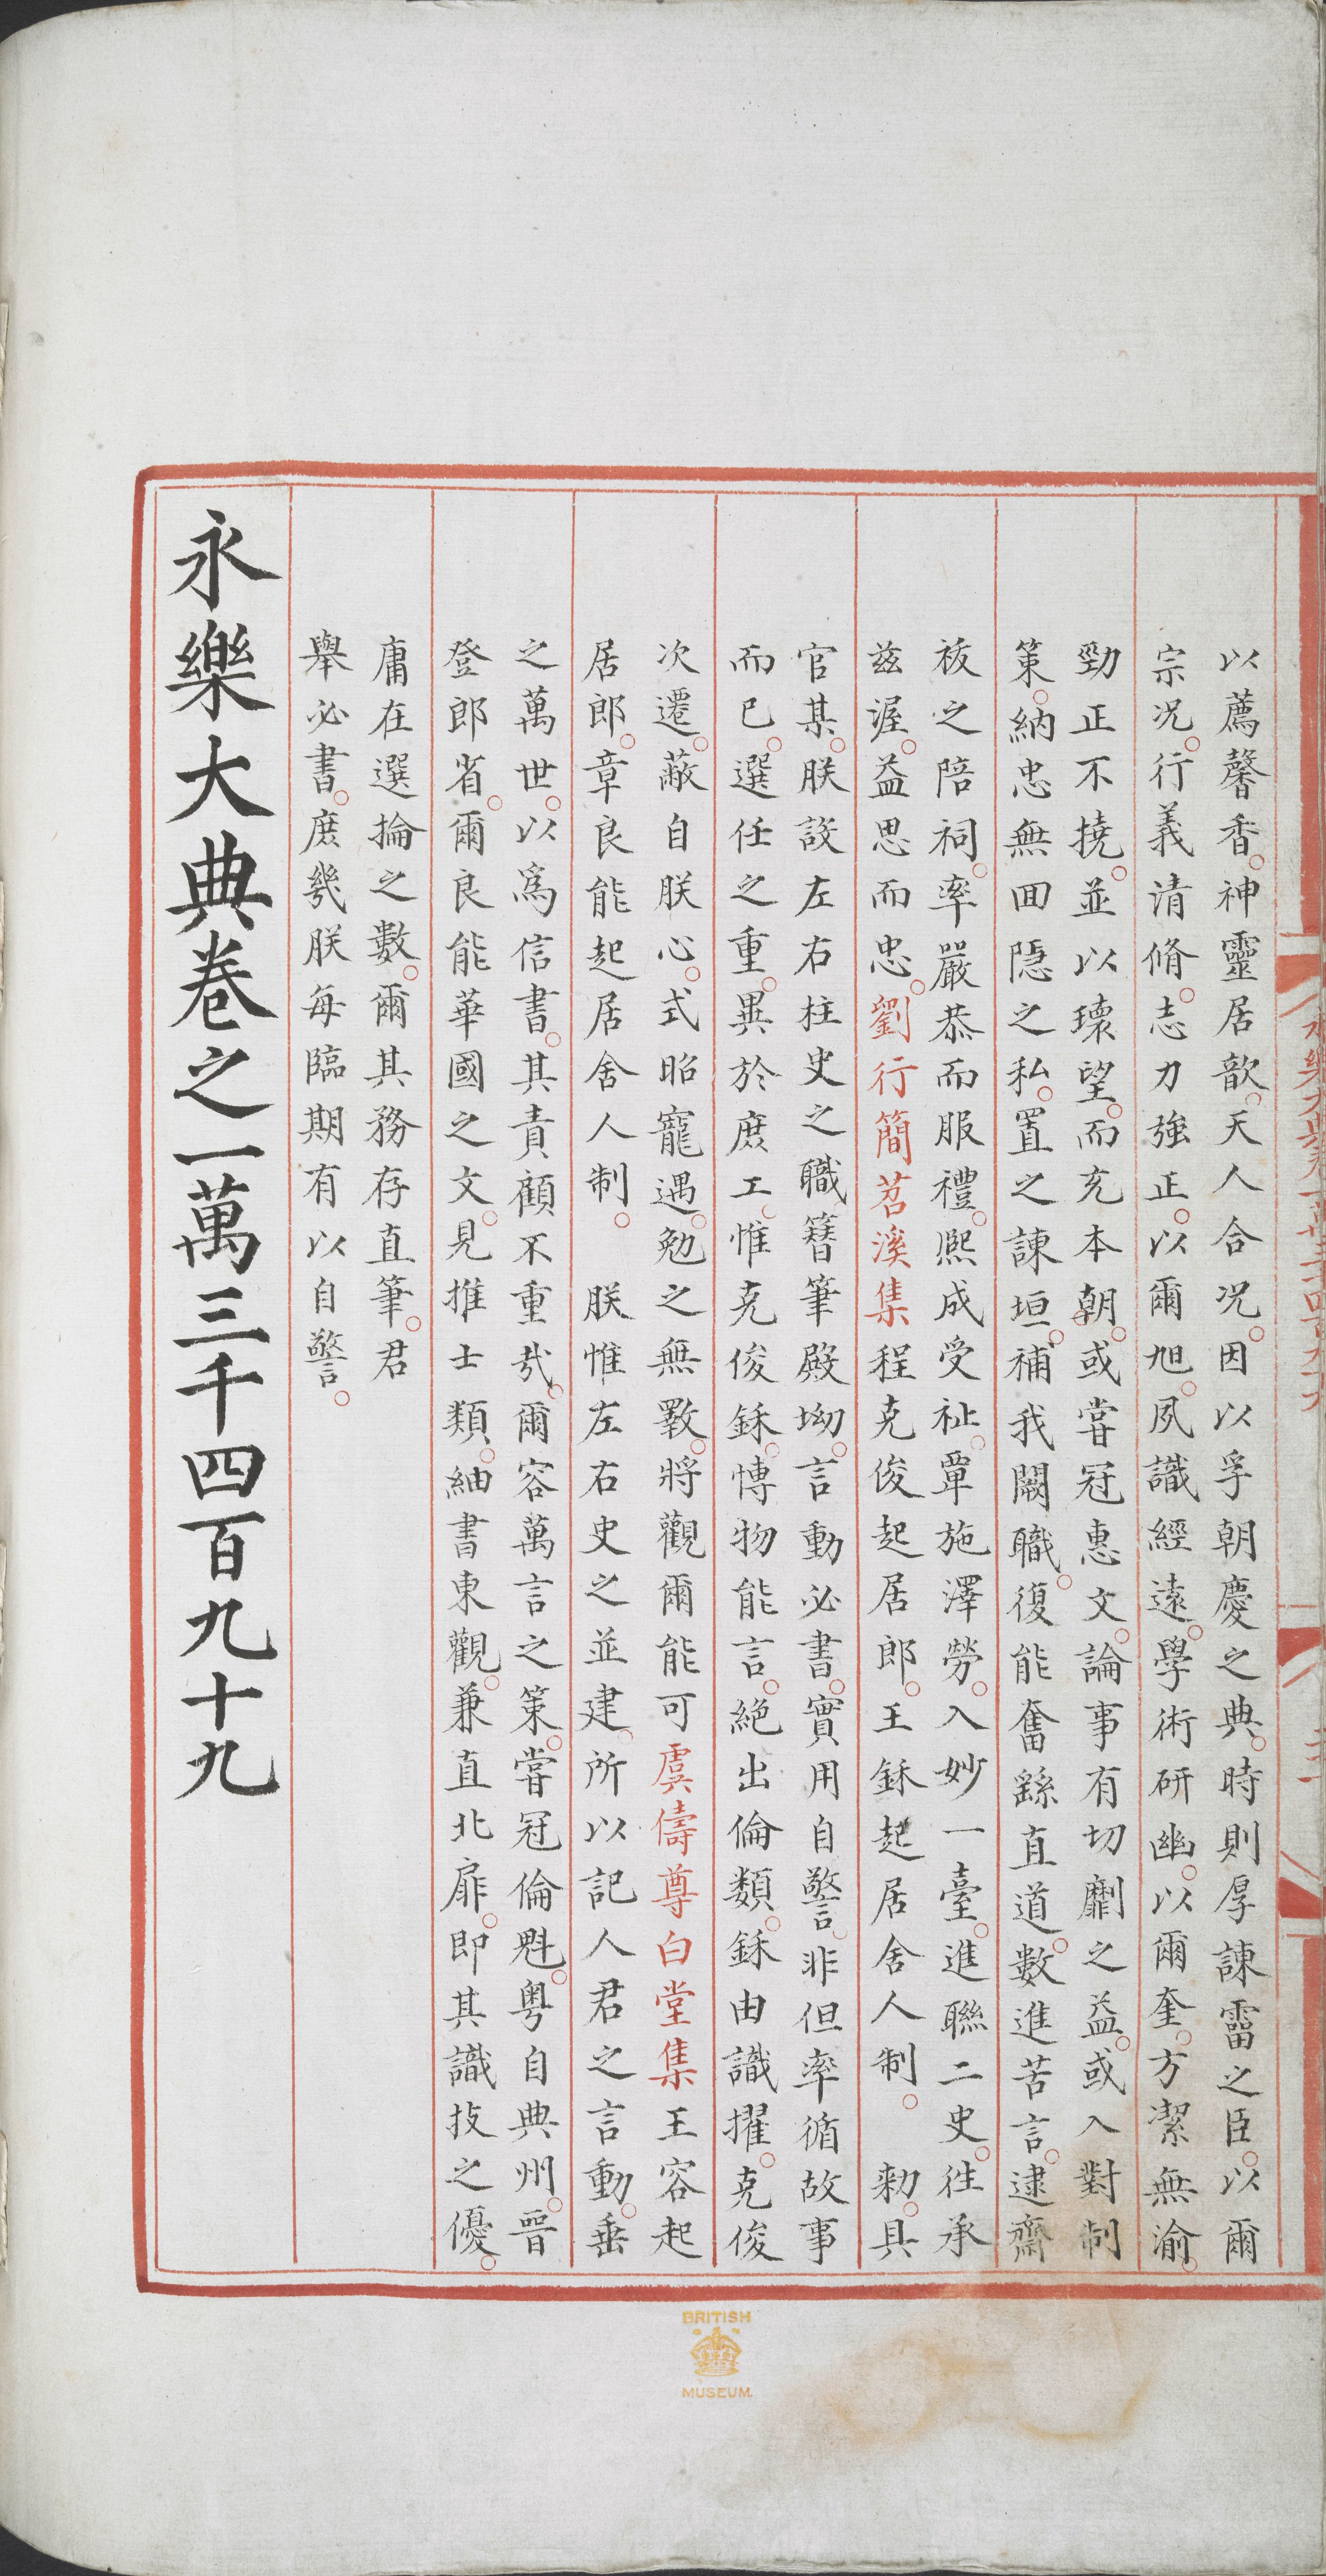 以薦馨香神靈居歆天人合况因以孚朝慶之典時則厚諫霤之臣以爾
宗况行義清脩志力強正以爾旭夙識經遠學術研幽以爾奎方潔無渝
勁正不撓並以瓌望而充本朝或嘗冠惠文論事有切劘之益或入對制
策納忠無囬隱之私置之諫垣補我闕職復能奮繇直道數進苦言逮齋
祓之陪祠率嚴恭而服禮熙成受祉覃施澤勞入妙一臺進聯二史徃承
兹渥益思而忠劉行簡苕溪集程克俊起居郎王鉌起居舍人制 勑具
官某朕設左右柱史之職簪筆殿坳言動必書實用自警非但率循故事
而已選任之重異於庶工惟克俊鉌慱物能言絶出倫類鉌由識擢克俊
次遷蔽自朕心式昭寵遇勉之無斁將觀爾能可虞儔尊白堂集王容起
居郎章良能起居舍人制 朕惟左右史之並建所以記人君之言動垂
之萬世以爲信書其責顧不重㢤爾容萬言之策嘗冠倫魁粤自典州晉
登郎省爾良能華國之文見推士類紬書東觀兼直北扉即其識技之優
庸在選掄之數爾其務存直筆君
舉必書庶幾朕每臨期有以自警
永樂大典卷之一萬三千四百九十九
BRITISH
MUSEUM